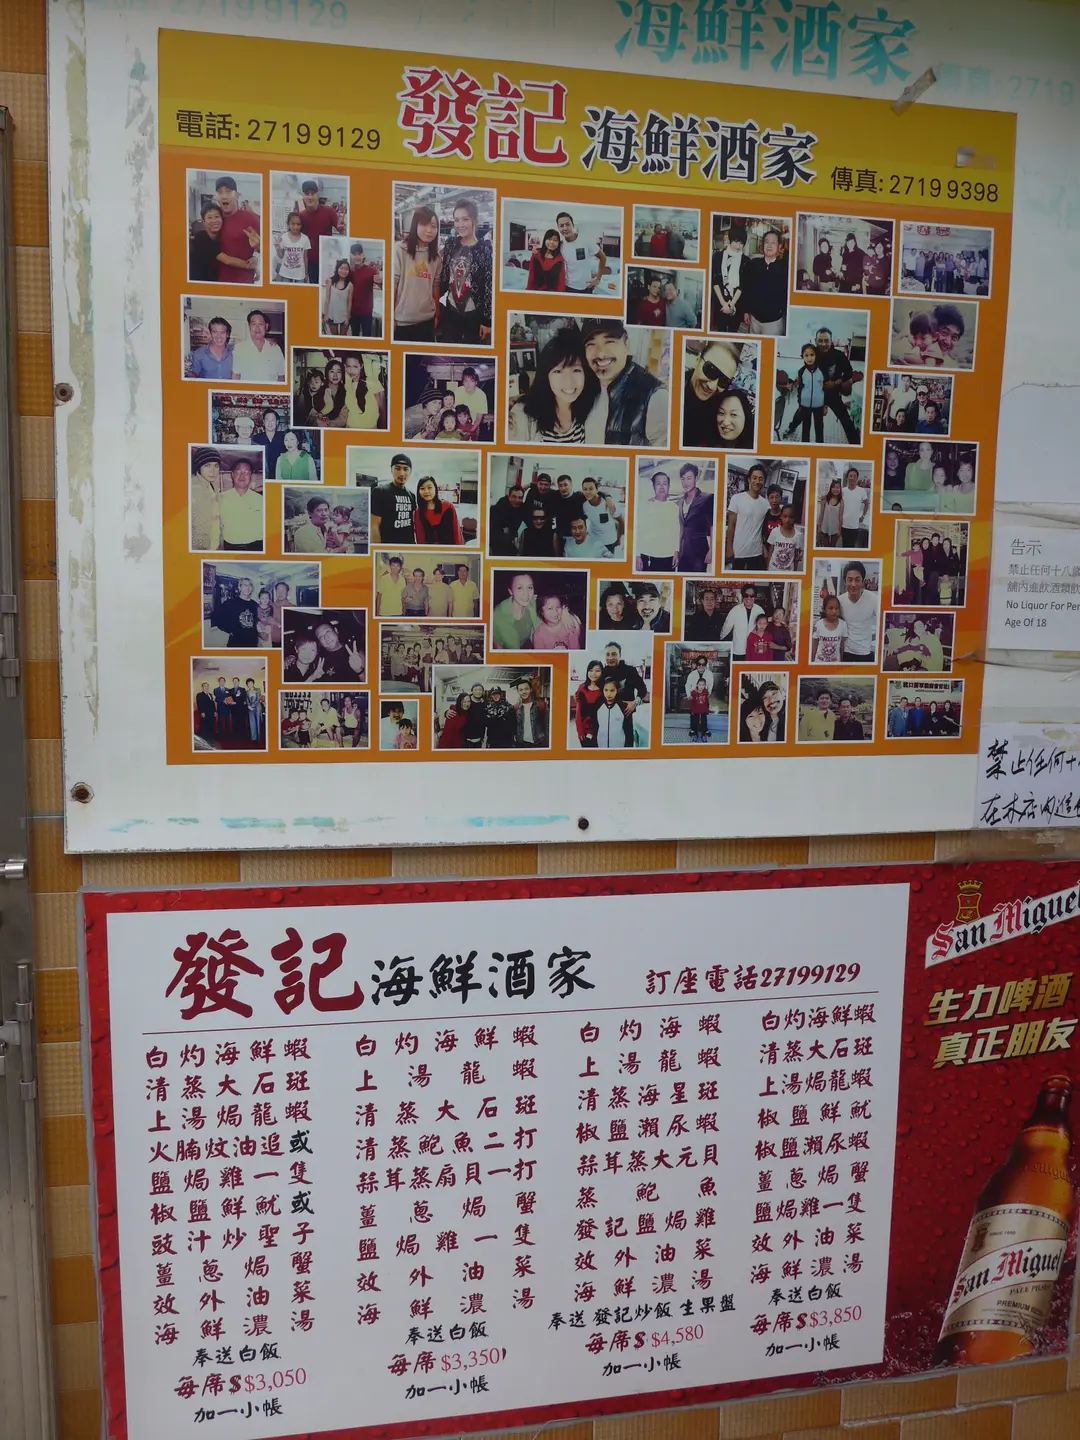 海鮮酒家
電話: 2719 9129
發記 海鮮酒家
傳真: 2719 9398
告示
禁止任何十八歲
舖內進飲酒類飲
No Liquor For Per
Age Of 18
禁止任何十
在本店內進
發記 海鮮酒家
訂座電話27199129
白灼海鮮蝦
清蒸大石斑
上湯焗龍蝦
火腩炆油追或
鹽焗雞一隻
椒鹽鮮魷或
豉汁炒聖子
薑蔥焗蟹
效外油菜
海鮮濃湯
奉送白飯
每席$$3,050
加一小帳
白灼海鮮蝦
上湯龍蝦
清蒸大石斑
清蒸鮑魚二打
蒜茸蒸扇貝一打
薑蔥焗蟹
鹽焗雞一隻
效外油菜
海鮮濃湯
奉送白飯
每席$ $3,350
加一小帳
白灼海蝦
上湯龍蝦
清蒸海星斑
椒鹽瀨尿蝦
蒜茸蒸大元貝
蒸鮑魚
發記鹽焗雞
效外油菜
海鮮濃湯
奉送 發記炒飯 生果盤
每席$ $4,580
加一小帳
白灼海鮮蝦
清蒸大石斑
上湯焗龍蝦
椒鹽鮮魷
椒鹽瀨尿蝦
薑蔥焗蟹
鹽焗雞一隻
效外油菜
海鮮濃湯
奉送白飯
每席$ $3,850
加一小帳
San Miguel
生力啤酒
真正朋友
San Miguel
PALE PILSEN
PREMIUM BEER